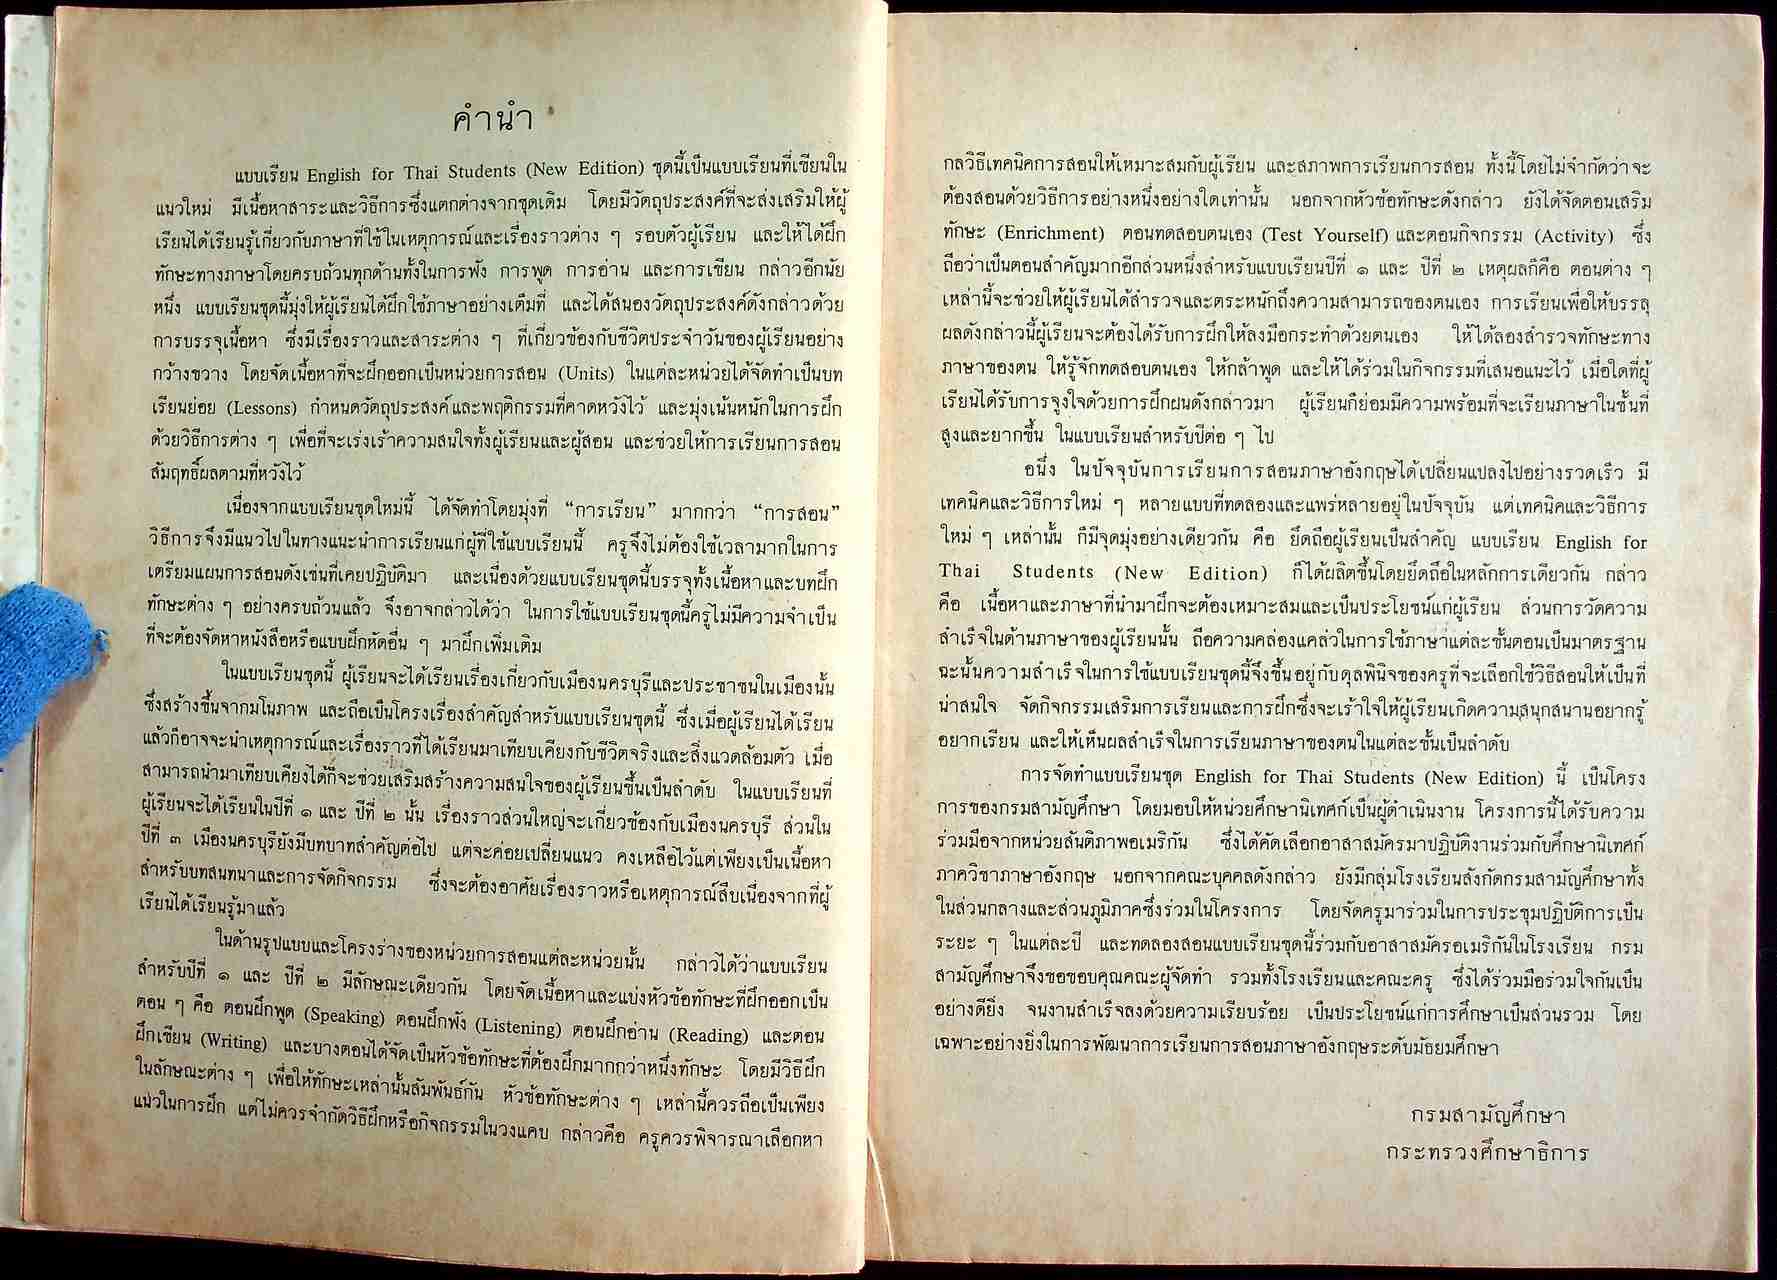 คำนำ
แบบเรียน English for Thai Students (New Edition) ชุดนี้เป็นแบบเรียนที่เขียนใน
แนวใหม่ มีเนื้อหาสาระและวิธีการซึ่งแตกต่างจากชุดเดิม โดยมีวัตถุประสงค์ที่จะส่งเสริมให้ผู้
เรียนได้เรียนรู้เกี่ยวกับภาษาที่ใช้ในเหตุการณ์และเรื่องราวต่าง ๆ รอบตัวผู้เรียน และให้ได้ฝึก
ทักษะทางภาษาโดยครบถ้วนทุกด้านทั้งในการฟัง การพูด การอ่าน และการเขียน กล่าวอีกนัย
หนึ่ง แบบเรียนชุดนี้มุ่งให้ผู้เรียนได้ฝึกใช้ภาษาอย่างเต็มที่ และได้สนองวัตถุประสงค์ดังกล่าวด้วย
การบรรจุเนื้อหา ซึ่งมีเรื่องราวและสาระต่าง ๆ ที่เกี่ยวข้องกับชีวิตประจำวันของผู้เรียนอย่าง
กว้างขวาง โดยจัดเนื้อหาที่จะฝึกออกเป็นหน่วยการสอน (Units) ในแต่ละหน่วยได้จัดทำเป็นบท
เรียนย่อย (Lessons) กำหนดวัตถุประสงค์และพฤติกรรมที่คาดหวังไว้ และมุ่งเน้นหนักในการฝึก
ด้วยวิธีการต่าง ๆ เพื่อที่จะเร่งเร้าความสนใจทั้งผู้เรียนและผู้สอน และช่วยให้การเรียนการสอน
สัมฤทธิ์ผลตามที่หวังไว้
เนื่องจากแบบเรียนชุดใหม่นี้ ได้จัดทำโดยมุ่งที่ “การเรียน” มากกว่า “การสอน”
วิธีการจึงมีแนวไปในทางแนะนำการเรียนแก่ผู้ที่ใช้แบบเรียนนี้ ครูจึงไม่ต้องใช้เวลามากในการ
เตรียมแผนการสอนดังเช่นที่เคยปฏิบัติมา และเนื่องด้วยแบบเรียนชุดนี้บรรจุทั้งเนื้อหาและบทฝึก
ทักษะต่าง ๆ อย่างครบถ้วนแล้ว จึงอาจกล่าวได้ว่า ในการใช้แบบเรียนชุดนี้ครูไม่มีความจำเป็น
ที่จะต้องจัดหาหนังสือหรือแบบฝึกหัดอื่น ๆ มาฝึกเพิ่มเติม
ในแบบเรียนชุดนี้ ผู้เรียนจะได้เรียนเรื่องเกี่ยวกับเมืองนครบุรีและประชาชนในเมืองนั้น
ซึ่งสร้างขึ้นจากมโนภาพ และถือเป็นโครงเรื่องสำคัญสำหรับแบบเรียนชุดนี้ ซึ่งเมื่อผู้เรียนได้เรียน
แล้วก็อาจจะนำเหตุการณ์และเรื่องราวที่ได้เรียนมาเทียบเคียงกับชีวิตจริงและสิ่งแวดล้อมตัว เมื่อ
สามารถนำมาเทียบเคียงได้ก็จะช่วยเสริมสร้างความสนใจของผู้เรียนขึ้นเป็นลำดับ ในแบบเรียนที่
ผู้เรียนจะได้เรียนในปีที่ ๑ และ ปีที่ ๒ นั้น เรื่องราวส่วนใหญ่จะเกี่ยวข้องกับเมืองนครบุรี ส่วนใน
ปีที่ ๓ เมืองนครบุรียังมีบทบาทสำคัญต่อไป แต่จะค่อยเปลี่ยนแนว คงเหลือไว้แต่เพียงเป็นเนื้อหา
สำหรับบทสนทนาและการจัดกิจกรรม ซึ่งจะต้องอาศัยเรื่องราวหรือเหตุการณ์สืบเนื่องจากที่ผู้
เรียนได้เรียนรู้มาแล้ว
ในด้านรูปแบบและโครงร่างของหน่วยการสอนแต่ละหน่วยนั้น กล่าวได้ว่าแบบเรียน
สำหรับปีที่ ๑ และ ปีที่ ๒ มีลักษณะเดียวกัน โดยจัดเนื้อหาและแบ่งหัวข้อทักษะที่ฝึกออกเป็น
ตอน ๆ คือ ตอนฝึกพูด (Speaking) ตอนฝึกฟัง (Listening) ตอนฝึกอ่าน (Reading) และตอน
ฝึกเขียน (Writing) และบางตอนได้จัดเป็นหัวข้อทักษะที่ต้องฝึกมากกว่าหนึ่งทักษะ โดยมีวิธีฝึก
ในลักษณะต่าง ๆ เพื่อให้ทักษะเหล่านั้นสัมพันธ์กัน หัวข้อทักษะต่าง ๆ เหล่านี้ควรถือเป็นเพียง
แนวในการฝึก แต่ไม่ควรจำกัดวิธีฝึกหรือกิจกรรมในวงแคบ กล่าวคือ ครูควรพิจารณาเลือกหา
กลวิธีเทคนิคการสอนให้เหมาะสมกับผู้เรียน และสภาพการเรียนการสอน ทั้งนี้โดยไม่จำกัดว่าจะ
ต้องสอนด้วยวิธีการอย่างหนึ่งอย่างใดเท่านั้น นอกจากหัวข้อทักษะดังกล่าว ยังได้จัดตอนเสริม
ทักษะ (Enrichment) ตอนทดสอบตนเอง (Test Yourself) และตอนกิจกรรม (Activity) ซึ่ง
ถือว่าเป็นตอนสำคัญมากอีกส่วนหนึ่งสำหรับแบบเรียนปีที่ ๑ และ ปีที่ ๒ เหตุผลก็คือ ตอนต่าง ๆ
เหล่านี้จะช่วยให้ผู้เรียนได้สำรวจและตระหนักถึงความสามารถของตนเอง การเรียนเพื่อให้บรรลุ
ผลดังกล่าวนี้ผู้เรียนจะต้องได้รับการฝึกให้ลงมือกระทำด้วยตนเอง ให้ได้ลองสำรวจทักษะทาง
ภาษาของตน ให้รู้จักทดสอบตนเอง ให้กล้าพูด และให้ได้ร่วมในกิจกรรมที่เสนอแนะไว้ เมื่อใดที่ผู้
เรียนได้รับการจูงใจด้วยการฝึกฝนดังกล่าวมา ผู้เรียนก็ย่อมมีความพร้อมที่จะเรียนภาษาในชั้นที่
สูงและยากขึ้น ในแบบเรียนสำหรับปีต่อ ๆ ไป
อนึ่ง ในปัจจุบันการเรียนการสอนภาษาอังกฤษได้เปลี่ยนแปลงไปอย่างรวดเร็ว มี
เทคนิคและวิธีการใหม่ ๆ หลายแบบที่ทดลองและแพร่หลายอยู่ในปัจจุบัน แต่เทคนิคและวิธีการ
ใหม่ ๆ เหล่านั้น ก็มีจุดมุ่งอย่างเดียวกัน คือ ยึดถือผู้เรียนเป็นสำคัญ แบบเรียน English for
Thai Students (New Edition) ก็ได้ผลิตขึ้นโดยยึดถือในหลักการเดียวกัน กล่าว
คือ เนื้อหาและภาษาที่นำมาฝึกจะต้องเหมาะสมและเป็นประโยชน์แก่ผู้เรียน ส่วนการวัดความ
สำเร็จในด้านภาษาของผู้เรียนนั้น ถือความคล่องแคล่วในการใช้ภาษาแต่ละขั้นตอนเป็นมาตรฐาน
ฉะนั้นความสำเร็จในการใช้แบบเรียนชุดนี้จึงขึ้นอยู่กับดุลพินิจของครูที่จะเลือกใช้วิธีสอนให้เป็นที่
น่าสนใจ จัดกิจกรรมเสริมการเรียนและการฝึกซึ่งจะเร้าใจให้ผู้เรียนเกิดความสนุกสนานอยากรู้
อยากเรียน และให้เห็นผลสำเร็จในการเรียนภาษาของตนในแต่ละขั้นเป็นลำดับ
การจัดทำแบบเรียนชุด English for Thai Students (New Edition) นี้ เป็นโครง
การของกรมสามัญศึกษา โดยมอบให้หน่วยศึกษานิเทศก์เป็นผู้ดำเนินงาน โครงการนี้ได้รับความ
ร่วมมือจากหน่วยสันติภาพอเมริกัน ซึ่งได้คัดเลือกอาสาสมัครมาปฏิบัติงานร่วมกับศึกษานิเทศก์
ภาควิชาภาษาอังกฤษ นอกจากคณะบุคคลดังกล่าว ยังมีกลุ่มโรงเรียนสังกัดกรมสามัญศึกษาทั้ง
ในส่วนกลางและส่วนภูมิภาคซึ่งร่วมในโครงการ โดยจัดครูมาร่วมในการประชุมปฏิบัติการเป็น
ระยะ ๆ ในแต่ละปี และทดลองสอนแบบเรียนชุดนี้ร่วมกับอาสาสมัครอเมริกันในโรงเรียน กรม
สามัญศึกษาจึงขอขอบคุณคณะผู้จัดทำ รวมทั้งโรงเรียนและคณะครู ซึ่งได้ร่วมมือร่วมใจกันเป็น
อย่างดียิ่ง จนงานสำเร็จลงด้วยความเรียบร้อย เป็นประโยชน์แก่การศึกษาเป็นส่วนรวม โดย
เฉพาะอย่างยิ่งในการพัฒนาการเรียนการสอนภาษาอังกฤษระดับมัธยมศึกษา
กรมสามัญศึกษา
กระทรวงศึกษาธิการ